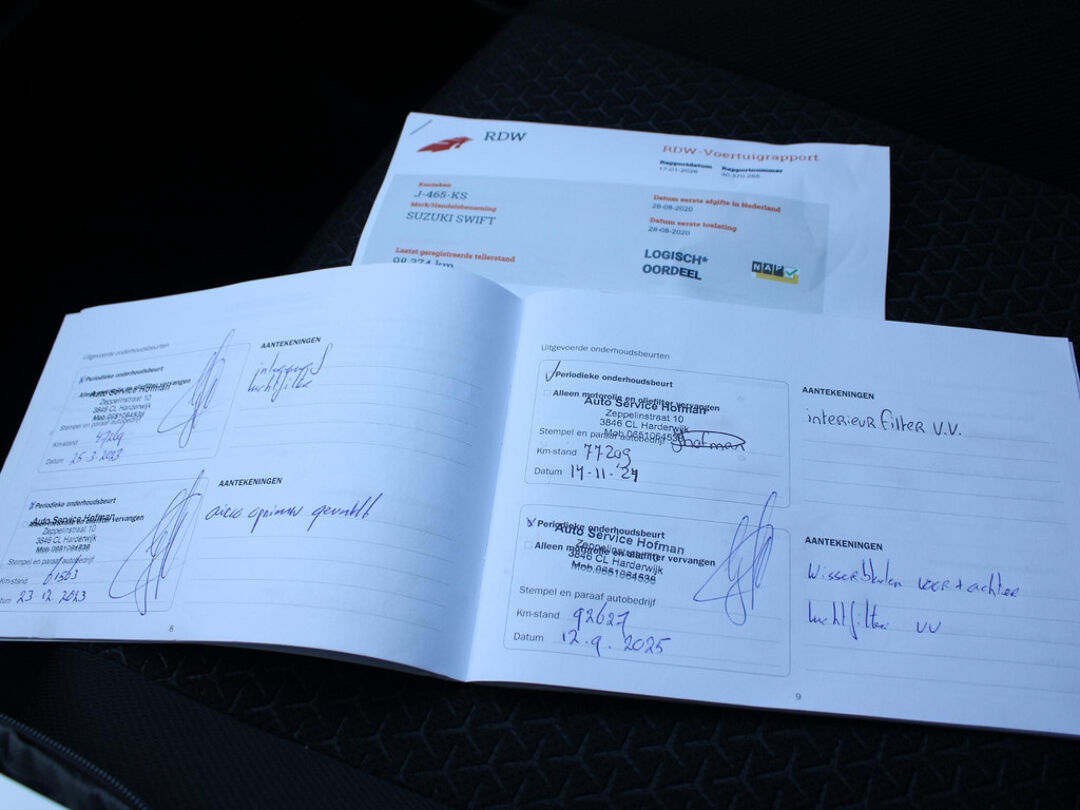 RDW
RDW-Voertuigrapport
Rapportdatum Rapportnummer
17-01-2026
Kenteken
J-465-KS
Merk/Handelsbenaming
SUZUKI SWIFT
Datum eerste afgifte in Nederland
28-08-2020
Datum eerste toelating
28-08-2020
Laatst geregistreerde tellerstand
98.274 km
LOGISCH*
OORDEEL
NAP
Uitgevoerde onderhoudsbeurten
Periodieke onderhoudsbeurt
Alleen motorolie en oliefilter vervangen
Auto Service Hofman
Zeppelinstraat 10
3846 CL Harderwijk
Mob.0651064538
Stempel en paraaf autobedrijf
Km-stand
Datum 25-3-2023
AANTEKENINGEN
luchtfilter
Periodieke onderhoudsbeurt
Alleen motorolie en oliefilter vervangen
Auto Service Hofman
Zeppelinstraat 10
3846 CL Harderwijk
Mob.0651064538
Stempel en paraaf autobedrijf
Km-stand 61563
Datum 23-12-2023
AANTEKENINGEN
airco opnieuw gevuld
8
Uitgevoerde onderhoudsbeurten
Periodieke onderhoudsbeurt
Alleen motorolie en oliefilter vervangen
Auto Service Hofman
Zeppelinstraat 10
3846 CL Harderwijk
Mob.0651064538
Stempel en paraaf autobedrijf Hofman
Km-stand 77209
Datum 14-11-'24
AANTEKENINGEN
interieurfilter v.v.
Periodieke onderhoudsbeurt
Alleen motorolie en oliefilter vervangen
Auto Service Hofman
Zeppelinstraat 10
3846 CL Harderwijk
Mob.0651064538
Stempel en paraaf autobedrijf
Km-stand 92627
Datum 12.9.2025
AANTEKENINGEN
Wisserbladen voor + achter
luchtfilter vv
9